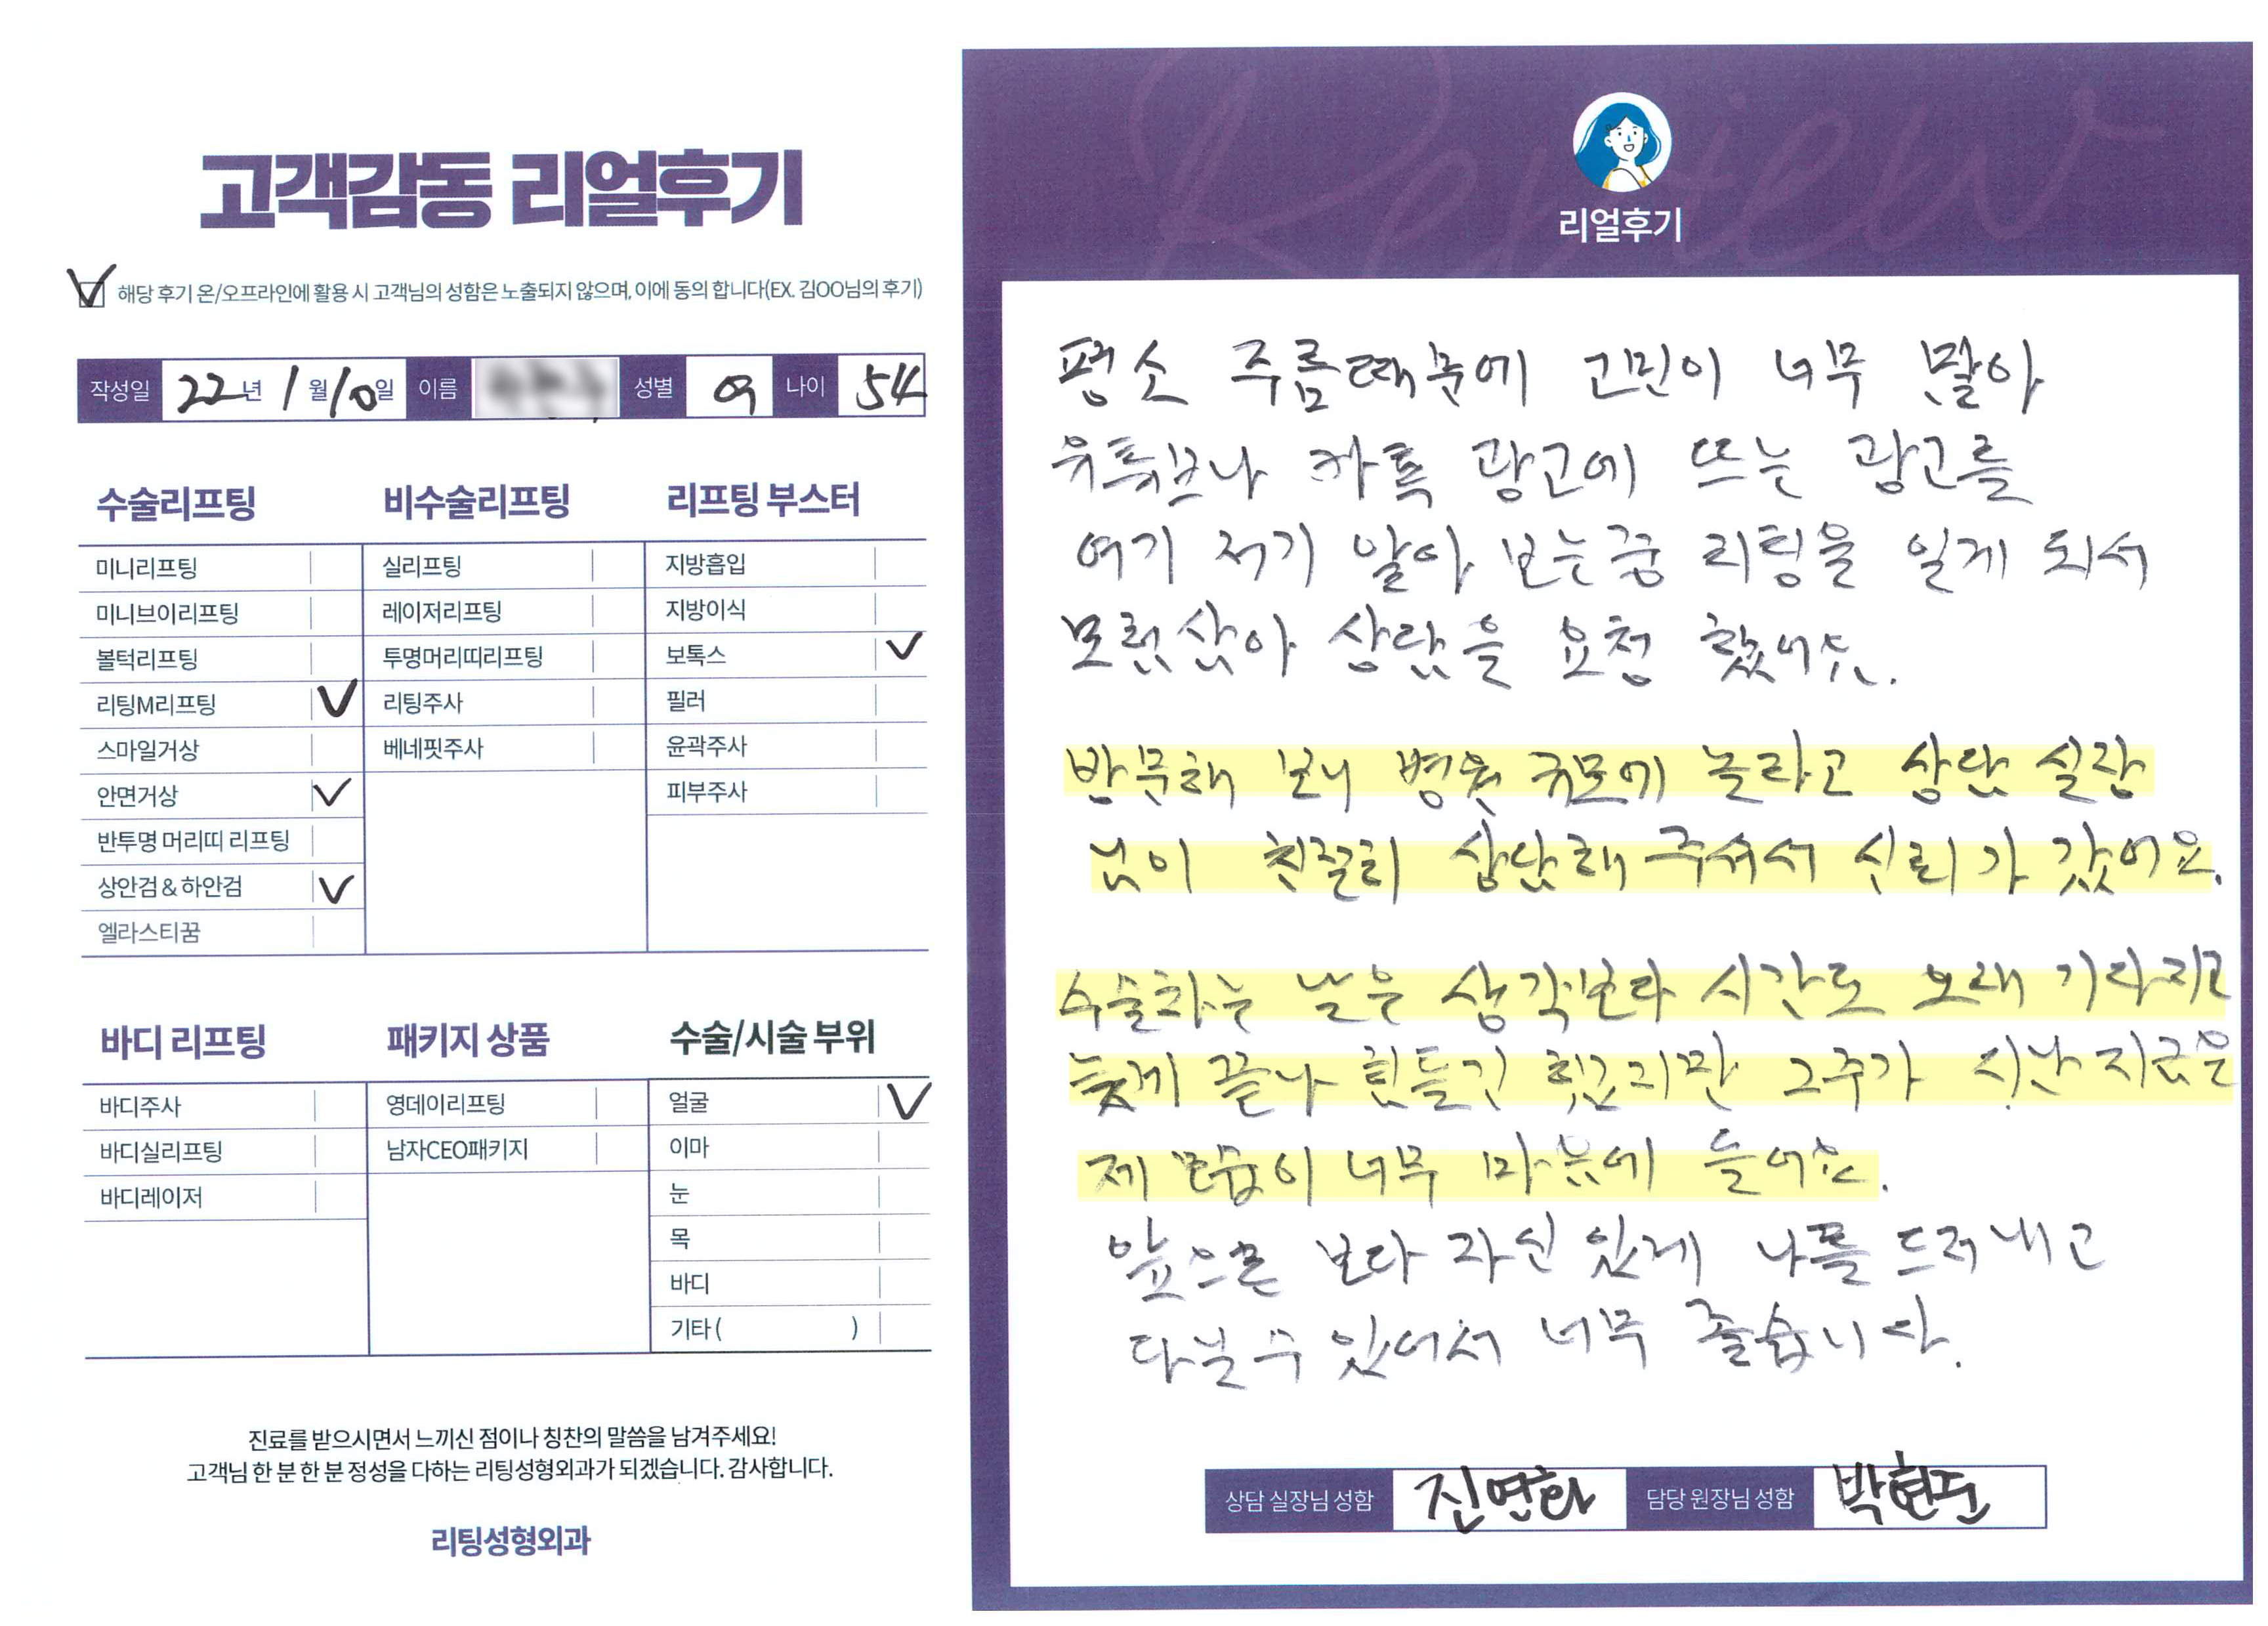 고객감동 리얼후기
해당 후기 온/오프라인에 활용 시 고객님의 성함은 노출되지 않으며, 이에 동의 합니다(EX. 김OO님의 후기)
작성일 22년 1월 10일 이름 성별 여 나이 54
수술리프팅
미니리프팅
미니브이리프팅
볼턱리프팅
리팅M리프팅
스마일거상
안면거상
반투명 머리띠 리프팅
상안검 & 하안검
엘라스티꿈
비수술리프팅
실리프팅
레이저리프팅
투명머리띠리프팅
리팅주사
베네핏주사
리프팅 부스터
지방흡입
지방이식
보톡스
필러
윤곽주사
피부주사
바디 리프팅
바디주사
바디실리프팅
바디레이저
패키지 상품
영데이리프팅
남자CEO패키지
수술/시술 부위
얼굴
이마
눈
목
바디
기타 ( )
진료를 받으시면서 느끼신 점이나 칭찬의 말씀을 남겨주세요!
고객님 한 분 한 분 정성을 다하는 리팅성형외과가 되겠습니다. 감사합니다.
리팅성형외과
Review
리얼후기
평소 주름때문에 고민이 너무 많아
유튜브나 카톡 광고에 뜨는 광고를
여기 저기 알아 보는중 리팅을 알게 되서
상담을 요청 했어요.
방문해 보니 병원 규모에 놀라고 상담 실장
님이 친절히 상담해 주셔서 신뢰가 갔어요.
수술하는 날은 생각보다 시간도 오래 기다리고
늦게 끝나 힘들긴 했지만 2주가 지난 지금은
제 모습이 너무 마음에 들어요.
앞으로 보다 자신 있게 나를 드러내고
다닐 수 있어서 너무 좋습니다.
상담 실장님 성함 진연화 담당 원장님 성함 박현준